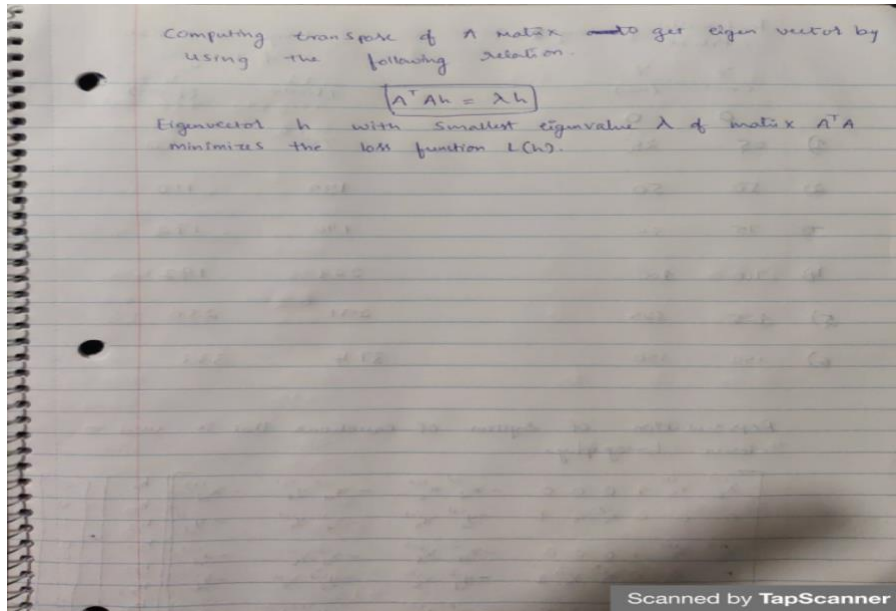 Computing transpose of A matrix to get eigen vector by
using the following relation.
AᵀAh = λh
Eigenvector h with smallest eigenvalue λ of matrix AᵀA
minimizes the loss function L(h).
Scanned by TapScanner